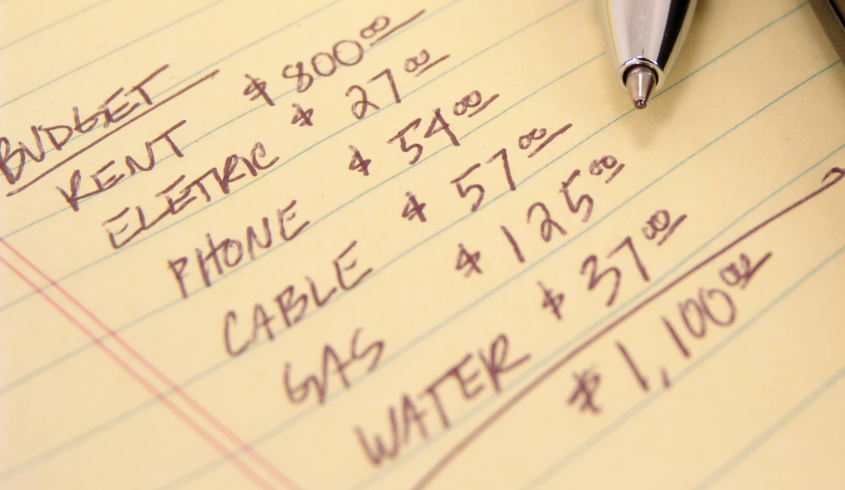 BUDGET
RENT $800.00
ELETRIC $27.00
PHONE $54.00
CABLE $57.00
GAS $125.00
WATER $37.00
$1,100.00